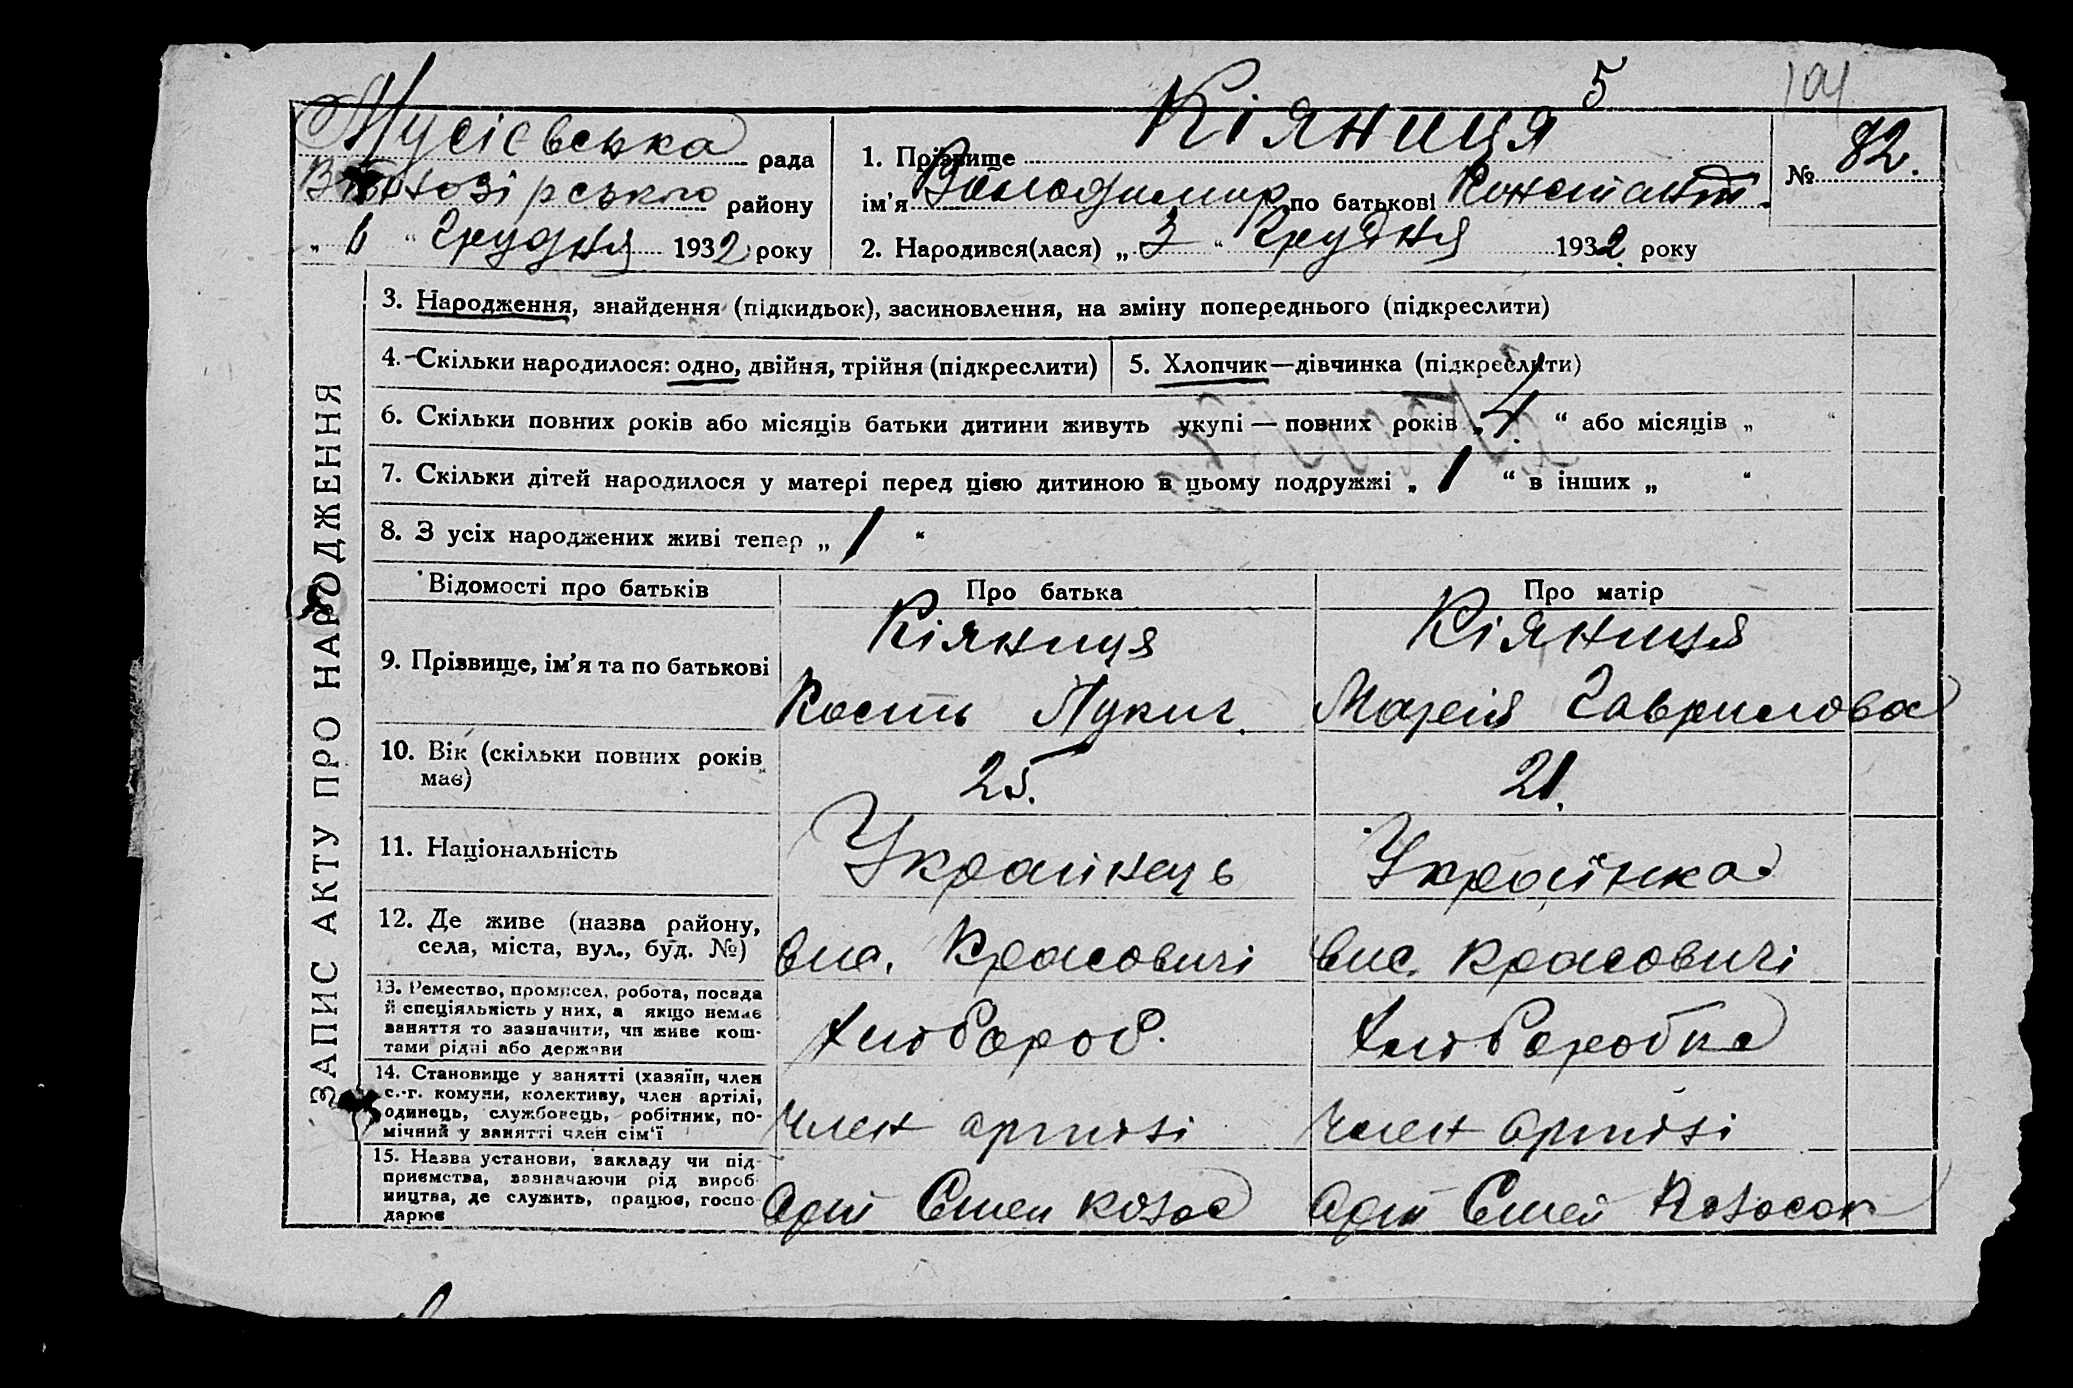 5 101
Мусієвська рада
району
„ 6 “ Грудня 1932 року
1. Прізвище Кіяниця
ім'я Володимир по батькові Констант.
№ 82.
2. Народився(лася) „ 3 “ Грудня 1932 року
ЗАПИС АКТУ ПРО НАРОДЖЕННЯ
3. Народження, знайдення (підкидьок), засиновлення, на зміну попереднього (підкреслити)
4. Скільки народилося: одно, двійня, трійня (підкреслити)
5. Хлопчик—дівчинка (підкреслити)
6. Скільки повних років або місяців батьки дитини живуть укупі — повних років „ 4 “ або місяців „ “
7. Скільки дітей народилося у матері перед цією дитиною в цьому подружжі „ 1 “ в інших „ “
8. З усіх народжених живі тепер „ 1 “
Відомості про батьків Про батька Про матір
9. Прізвище, ім'я та по батькові
Кіяниця
Кость Лукич
Кіяниця
Марія Гаврилова
10. Вік (скільки повних років
має)
25. 21.
11. Національність
Українець Українка
12. Де живе (назва району,
села, міста, вул., буд. №)
вис. Красовичі вис. Красовичі
13. Ремество, промисел, робота, посада
й спеціяльність у них, а якщо немає
заняття то зазначити, чи живе кош-
тами рідні або держави
хлібороб. хліборобка
14. Становище у занятті (хазяїн, член
с.-г. комуни, колективу, член артілі,
одинець, службовець, робітник, по-
мічний у занятті член сім'ї
член артілі член артілі
15. Назва установи, закладу чи під-
приємства, зазначаючи рід вироб-
ництва, де служить, працює, госпо-
дарює